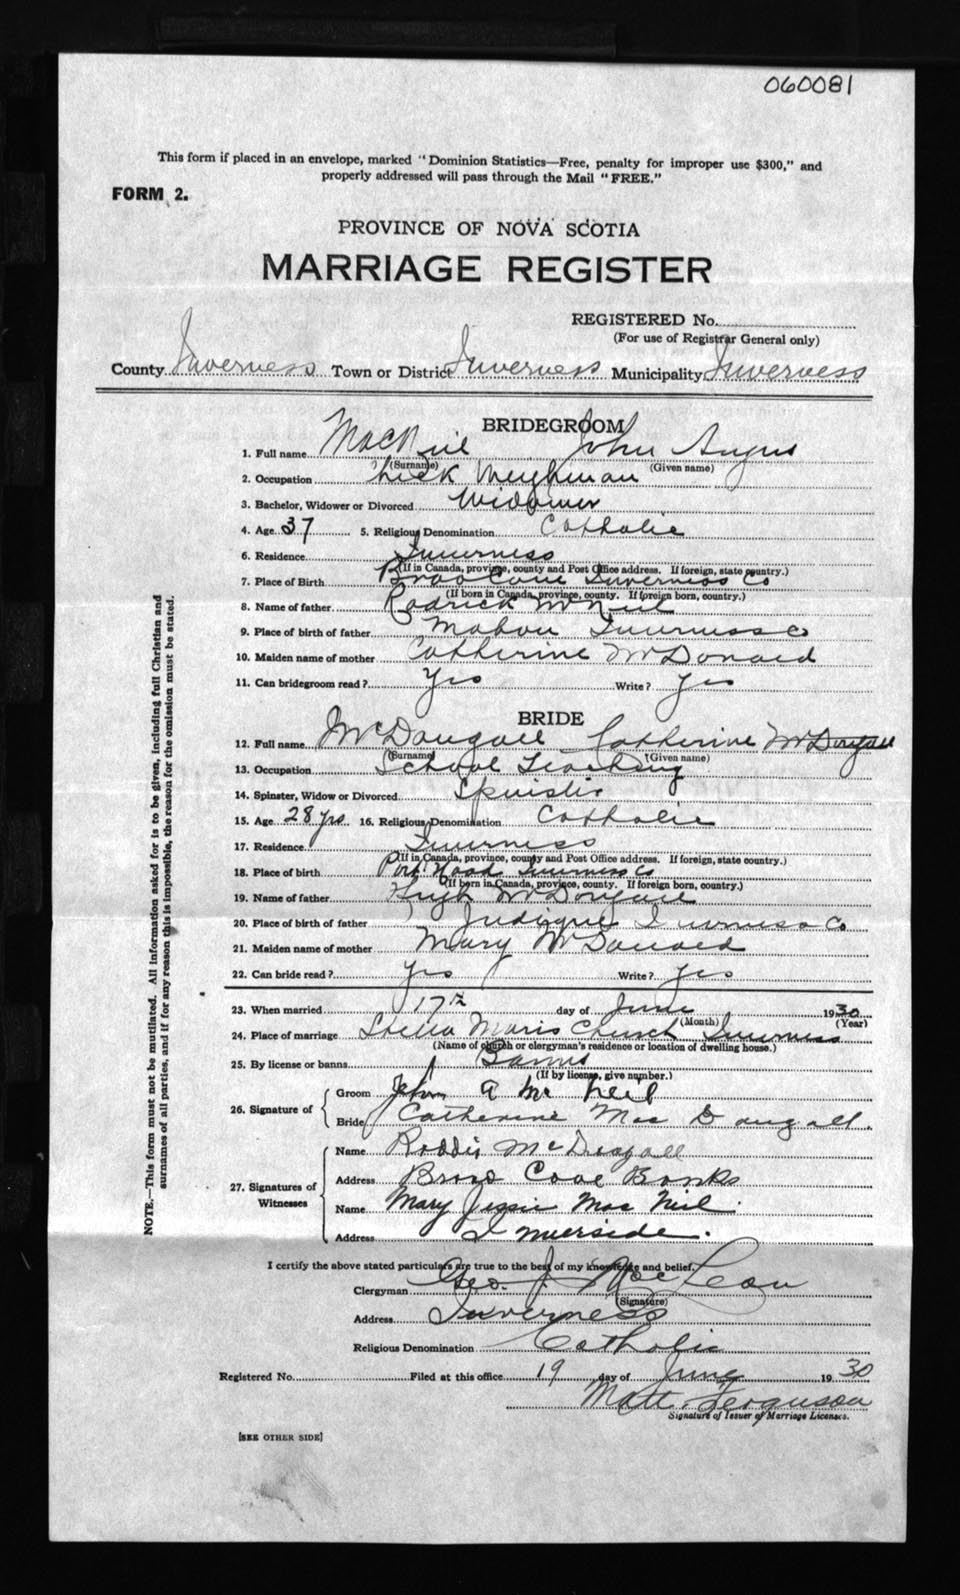 060081
This form if placed in an envelope, marked "Dominion Statistics—Free, penalty for improper use $300," and
properly addressed will pass through the Mail "FREE."
FORM 2.
PROVINCE OF NOVA SCOTIA
MARRIAGE REGISTER
REGISTERED No.
(For use of Registrar General only)
County Inverness Town or District Inverness Municipality Inverness
BRIDEGROOM
1. Full name MacNeil John Angus
(Surname) (Given name)
2. Occupation Check Weighman
3. Bachelor, Widower or Divorced Widower
4. Age 37 5. Religious Denomination Catholic
6. Residence Inverness
(If in Canada, province, county and Post Office address. If foreign, state country.)
7. Place of Birth Broad Cove Inverness Co
(If born in Canada, province, county. If foreign born, country.)
8. Name of father Rodrick McNeil
9. Place of birth of father Mabou Inverness Co
10. Maiden name of mother Catherine McDonald
11. Can bridegroom read? Yes Write? Yes
BRIDE
12. Full name McDougall Catherine McDougall
(Surname) (Given name)
13. Occupation School Teaching
14. Spinster, Widow or Divorced Spinster
15. Age 28 yrs 16. Religious Denomination Catholic
17. Residence Inverness
(If in Canada, province, county and Post Office address. If foreign, state country.)
18. Place of birth Port Hood Inverness Co
(If born in Canada, province, county. If foreign born, country.)
19. Name of father Hugh McDougall
20. Place of birth of father Judique Inverness Co
21. Maiden name of mother Mary McDonald
22. Can bride read? Yes Write? Yes
23. When married 17th day of June 1930
(Month) (Year)
24. Place of marriage Stella Maris Church Inverness
(Name of church or clergyman's residence or location of dwelling house.)
25. By license or banns Banns
(If by license, give number.)
26. Signature of Groom John A Mc Neil
Bride Catherine Mac Dougall.
27. Signatures of Witnesses Name Roddie McDougall
Address Broad Cove Banks
Name Mary Jessie Mac Neil.
Address Inverside.
I certify the above stated particulars are true to the best of my knowledge and belief.
Clergyman Geo. J. MacLean
(Signature)
Address Inverness
Religious Denomination Catholic
Registered No. Filed at this office 19 day of June 1930
Matt. Ferguson
Signature of Issuer of Marriage Licenses.
[SEE OTHER SIDE]
NOTE.—This form must not be mutilated. All information asked for is to be given, including full Christian and
surnames of all parties, and if for any reason this is impossible, the reason for the omission must be stated.